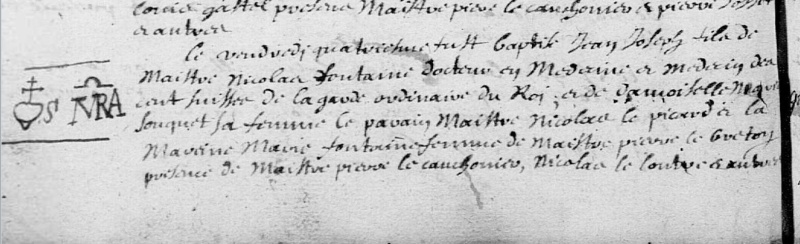 Louis gastel presence Maistre pierre le cauchonier et pierre
et autres
le vendredi quatriesme fust baptisé Jean Joseph fils de
Maistre Nicolas fontaine docteur en Medecine et medecin des
cent suisses de la garde ordinaire du Roi et de damoiselle Marie
fouquet sa femme le parain Maistre Nicolas le picard et la
Mareine Marie fontaine femme de Maistre pierre le breton
presence de Maistre pierre le cauchonier, Nicolas le loutre et autres
S MRA